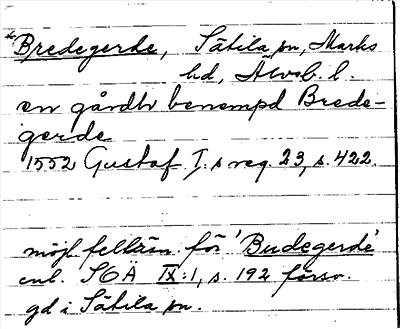 Bredegerde, Sätila sn, Marks
hd, Älvsb. l.
en gårdh benempd Brede-
gerde
1552 Gustaf I:s reg. 23, s. 422.
möjl. felläsn. för 'Budegerde'
enl. SOÄ IX:1, s. 192 försv.
gd i Sätila sn.